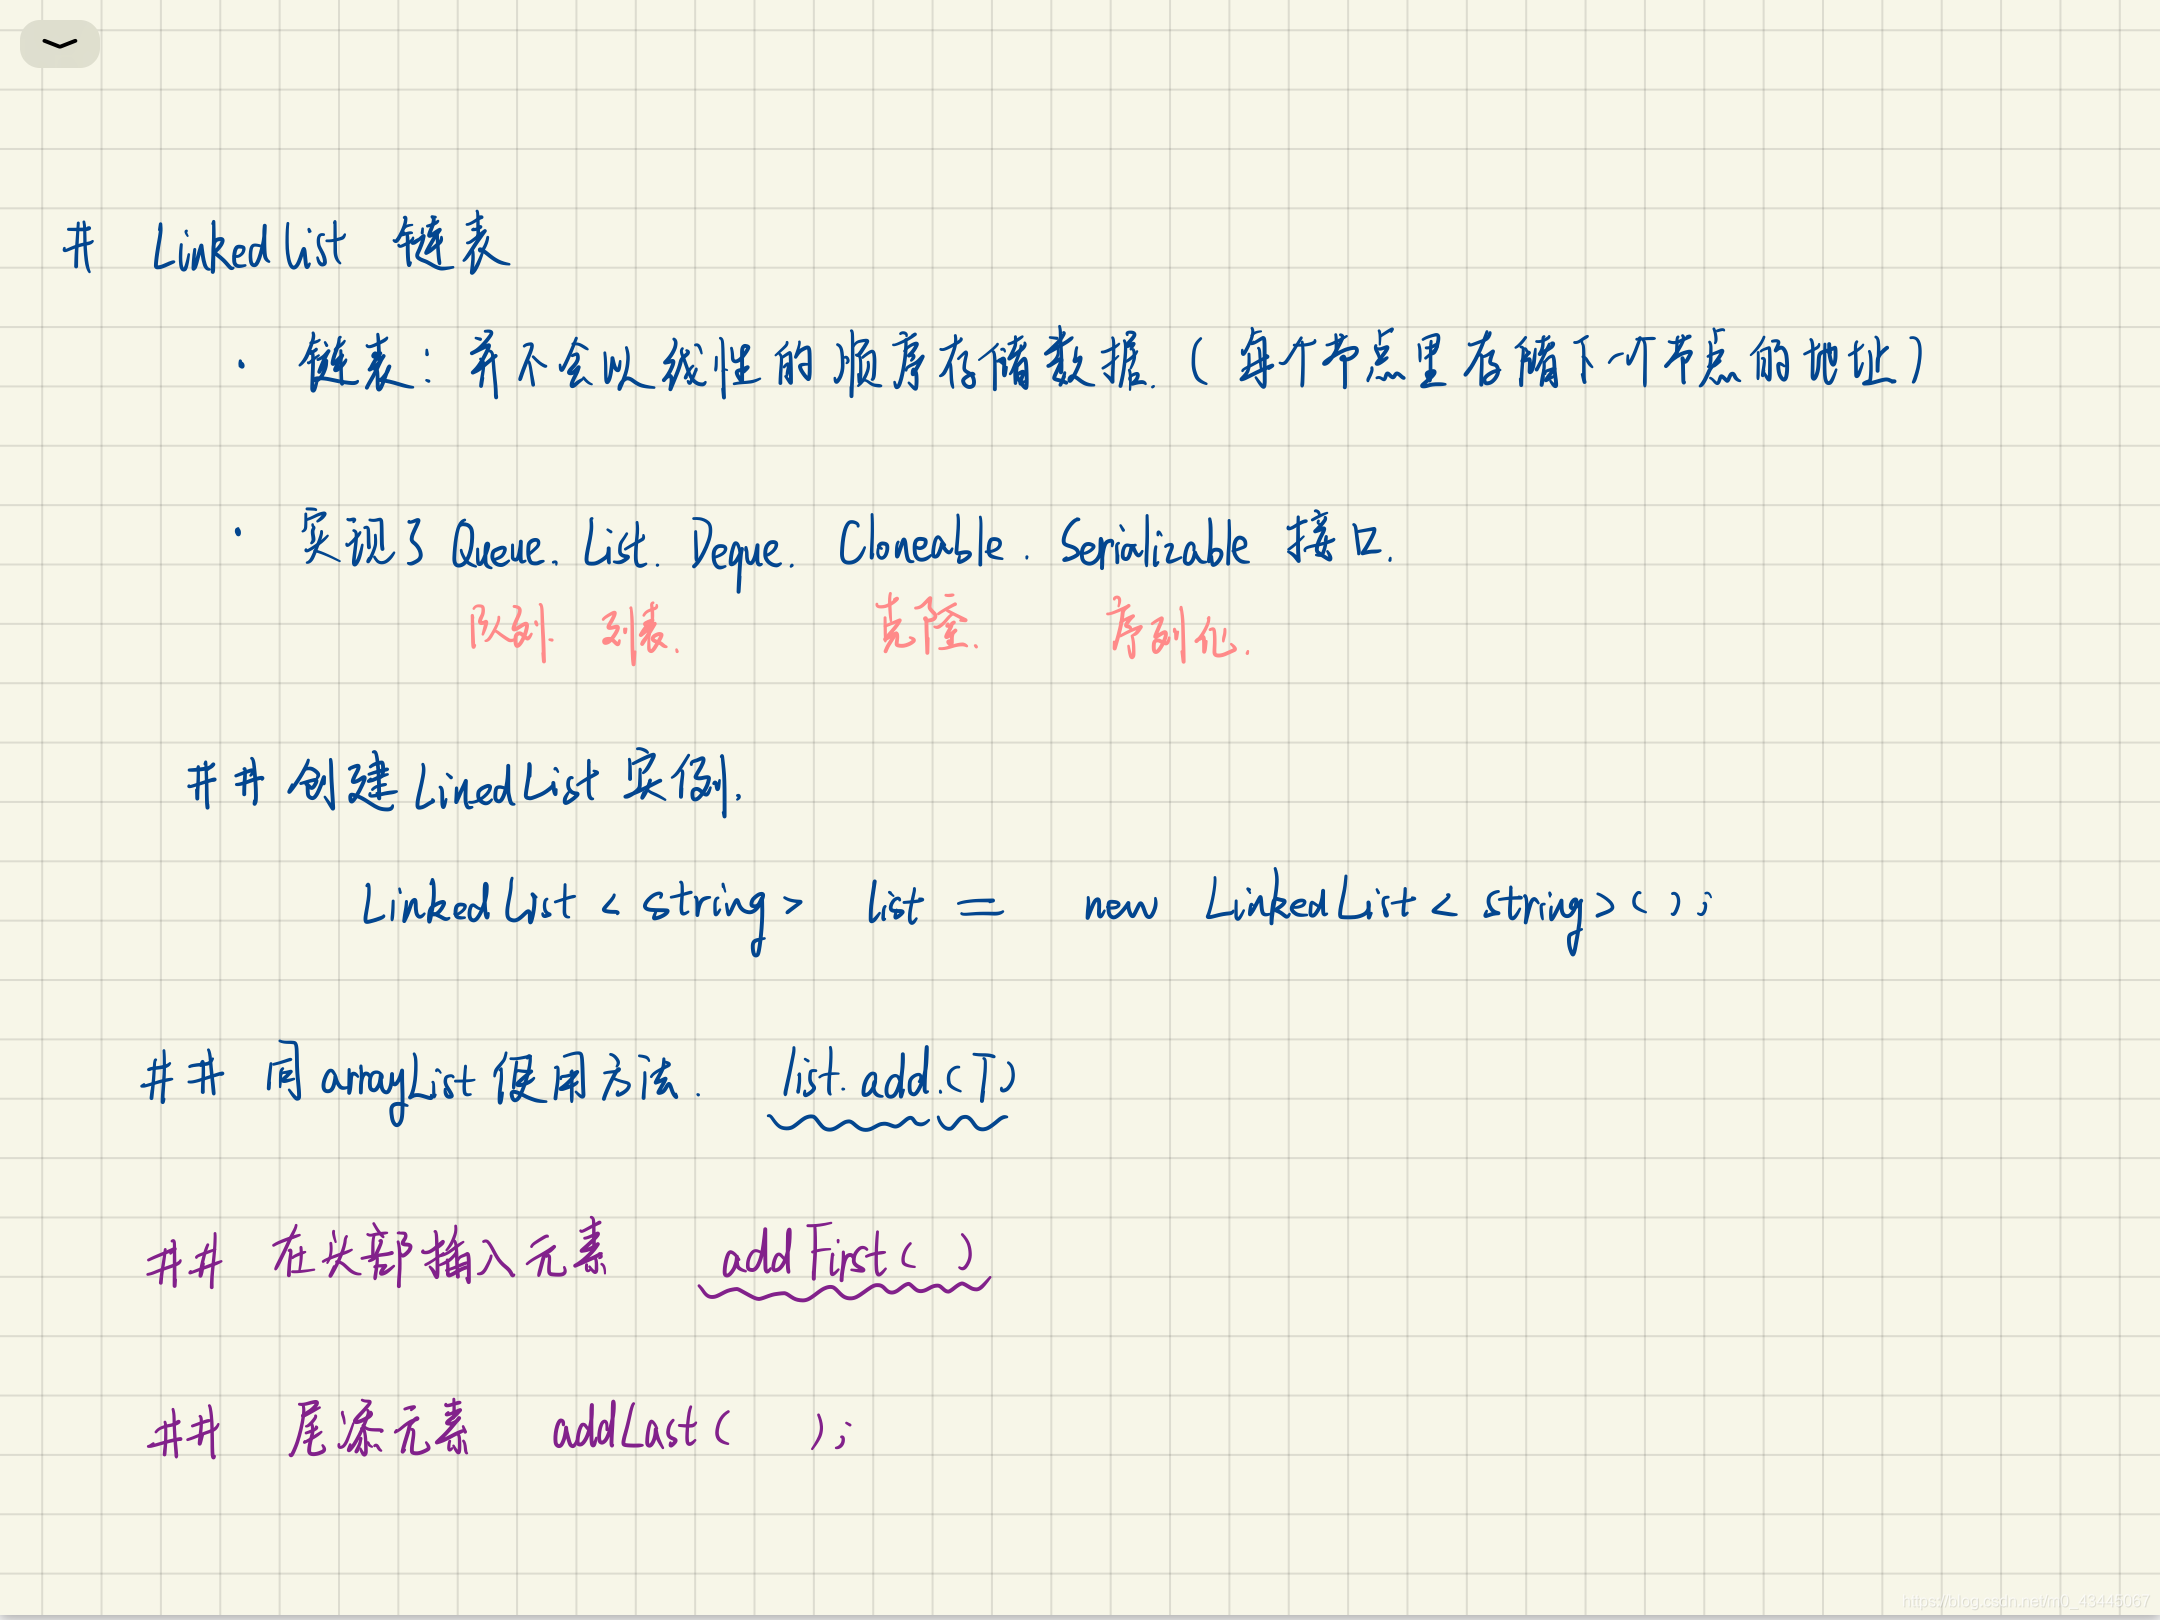 # Linkedlist 链表
· 链表: 并不会以线性的顺序存储数据. (每个节点里存储下一个节点的地址)
· 实现了 Queue. List. Deque. Cloneable. Serializable 接口.
队列. 列表. 克隆. 序列化.
## 创建 LinedList 实例.
LinkedList < string > list = new LinkedList < string > ( ) ;
## 同 arrayList 使用方法. list. add.(T)
## 在头部插入元素 addFirst( )
## 尾添元素 addLast( );
https://blog.csdn.net/m0_43445067